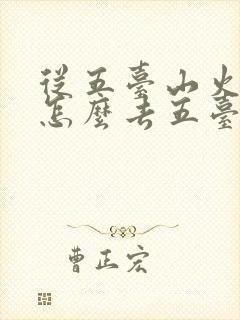 從五臺山火
怎麼去五臺
曹正宏